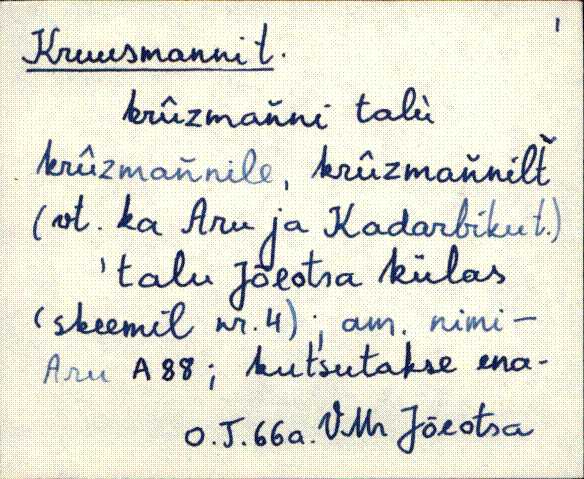 1
Kruusmanni t.
krûzmaňni talù
krûzmaňnile, krûzmaňnilt̆
(vt. ka Aru ja Kadarbiku t.)
'talu Jõeotsa külas
(skeemil nr. 4); am. nimi –
Aru A 88; kutsutakse ena-
O.J. 66a. VMr Jõeotsa